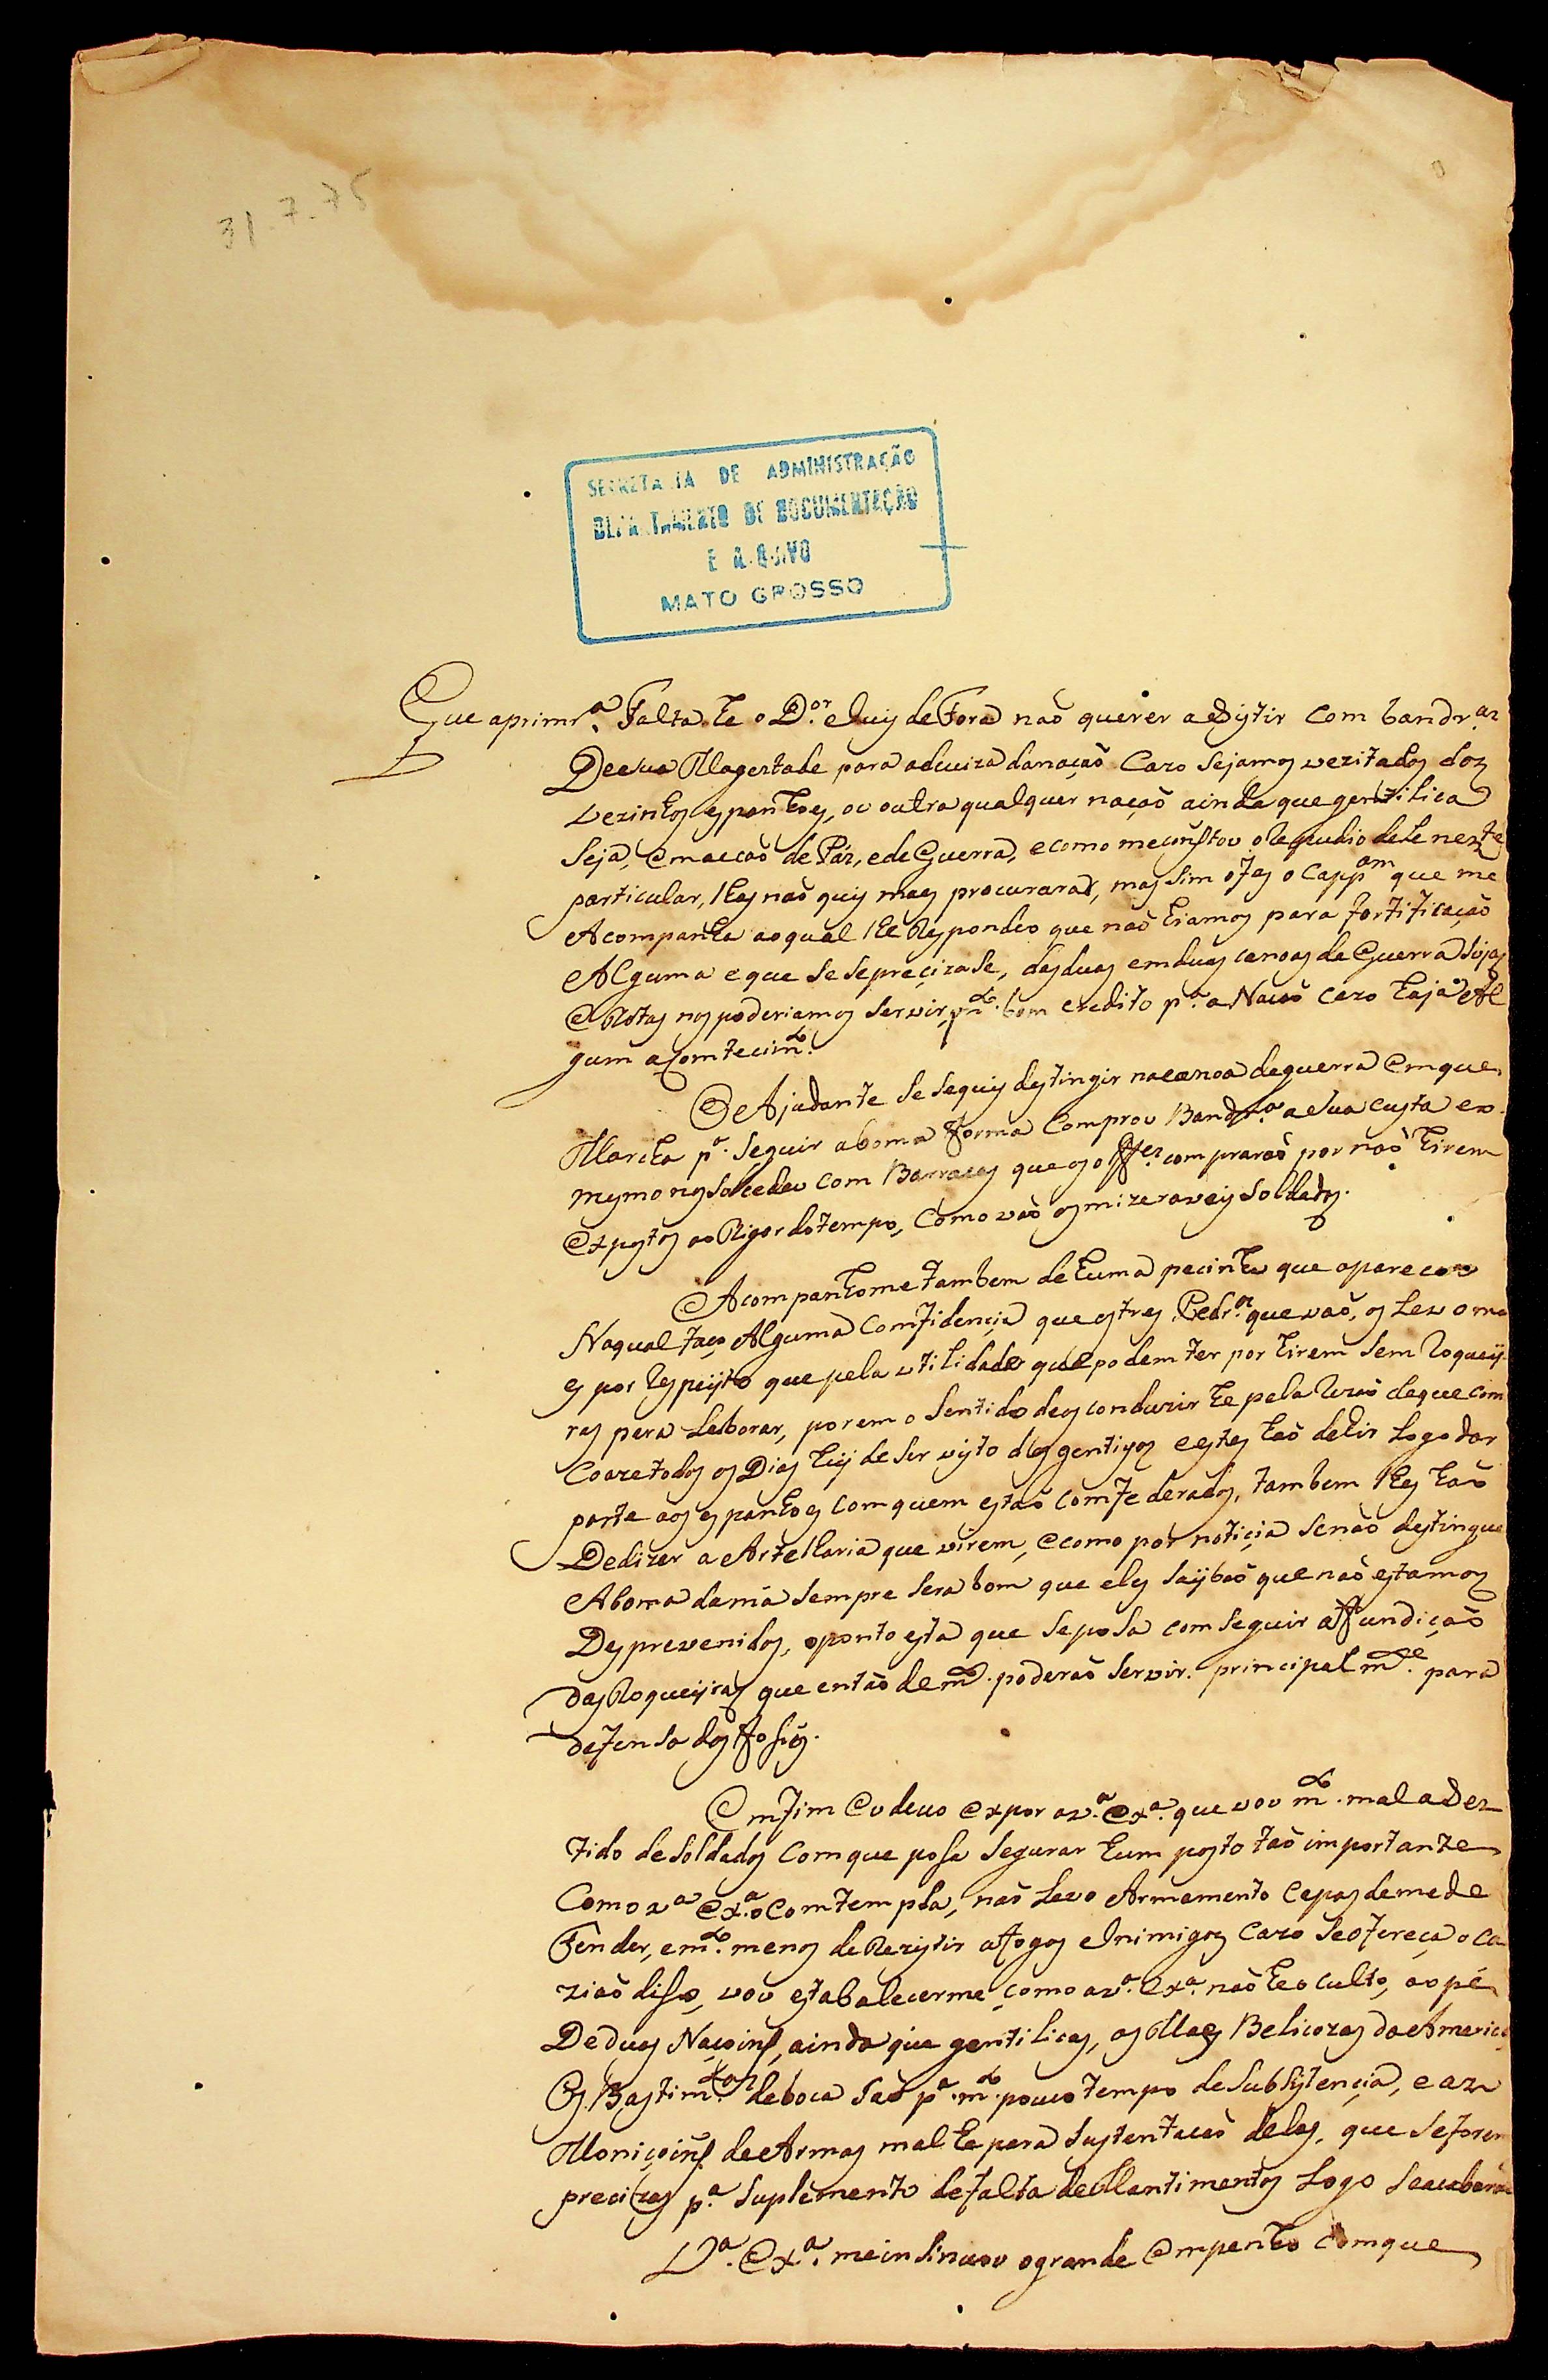 31-7-75
SECRETARIA DE ADMINISTRAÇÃO
DEPARTAMENTO DE DOCUMENTAÇÃO
E ARQUIVO
MATO GROSSO
Que aprimrª. Falta he o Dor. Juiz de Fora naõ querer asistir com bandras
De sua Magestade para adeviza danaçaõ Cazo Sejamos vezitados dos
vezinhos espanhoes, ou outra qualquer naçaõ ainda que gentilica
Seja, emaccaõ de Páz, ede Guerra, ecomo meconstou o Repudio dele neste
particular, lhas naõ quis mais procurarar, mas sim ofez o Cappam que me
Acompanha aoqual lhe Respondeo que naõ hiamos para fortificaçaõ
Alguma eque se seprecizase, das duas emduas canoas de Guerra Sujas
E Rotas nos poderiamos servir, mto. bom credito pª. a Nacaõ cazo haja Al
gum acomtecimto.
O Ajudante Se sequis destingir nacanoa deguerra emque
Marcha pª. Seguir aboma forma Comprou Bandrª. a sua custa eo
mesmo nos socedeu com Barracas que os offes. compraraõ por naõ hirem
Expostos ao Rigor do tempo, Como vaõ os mizeraveis Soldados.
Acompanhome tambem de huma pecinha que apareceo
Naqual faço Alguma Comfidencia que estres Pedros. que vaõ, os Levo ma
es por Respeyto que pela utilidade que podem ter por hirem Sem Roquey
ras pera Laborar, porem o Sentido deos conduzir he pela Rezaõ deque com
Coaze todos os Dias hey de ser visto dos gentios e estes haõ delir Logo dar
parte aos espanhoes comquem estaõ comfederados, tambem lhes haõ
Dedizer a Artelharia que virem, ecomo por noticia senaõ destingue
Aboma damá Sempre sera bom que eles Saybaõ que naõ estamos
Desprevenidos, oponto esta que Seposa comseguir affundiçaõ
das Roqueyras que entaõ demto. poderaõ Servir. principalmte. para
defensa dos fosios.
Emfim Eu devo Expor a vª. Exª. que vou mto. mal ades
tido de Soldados Comque posa Segurar hum posto taõ importante
Como vª. Exª. o Comtempla, naõ Levo Armamento Capas demede
Fender, emto. menos de Rezistir afogos Inimigos Cazo seofereça o ca
ziaõ diso, vou estabalecerme, como a vª. Exª. naõ he oculto, ao pé
De duas Naçoins, ainda que gentilicas, as Mais Belicozas da America
Os Bastimtos. deboca Saõ pª. mto. pouco tempo de Subsistencia, e az
Moniçoins de Armas mal he para Sustentacaõ delas, que Seforem
precizas pª. Suplemento defalta de Mantimentos Logo Seacabaraõ
Vª. Exª. meinsinuou ogrande Empenho Comque